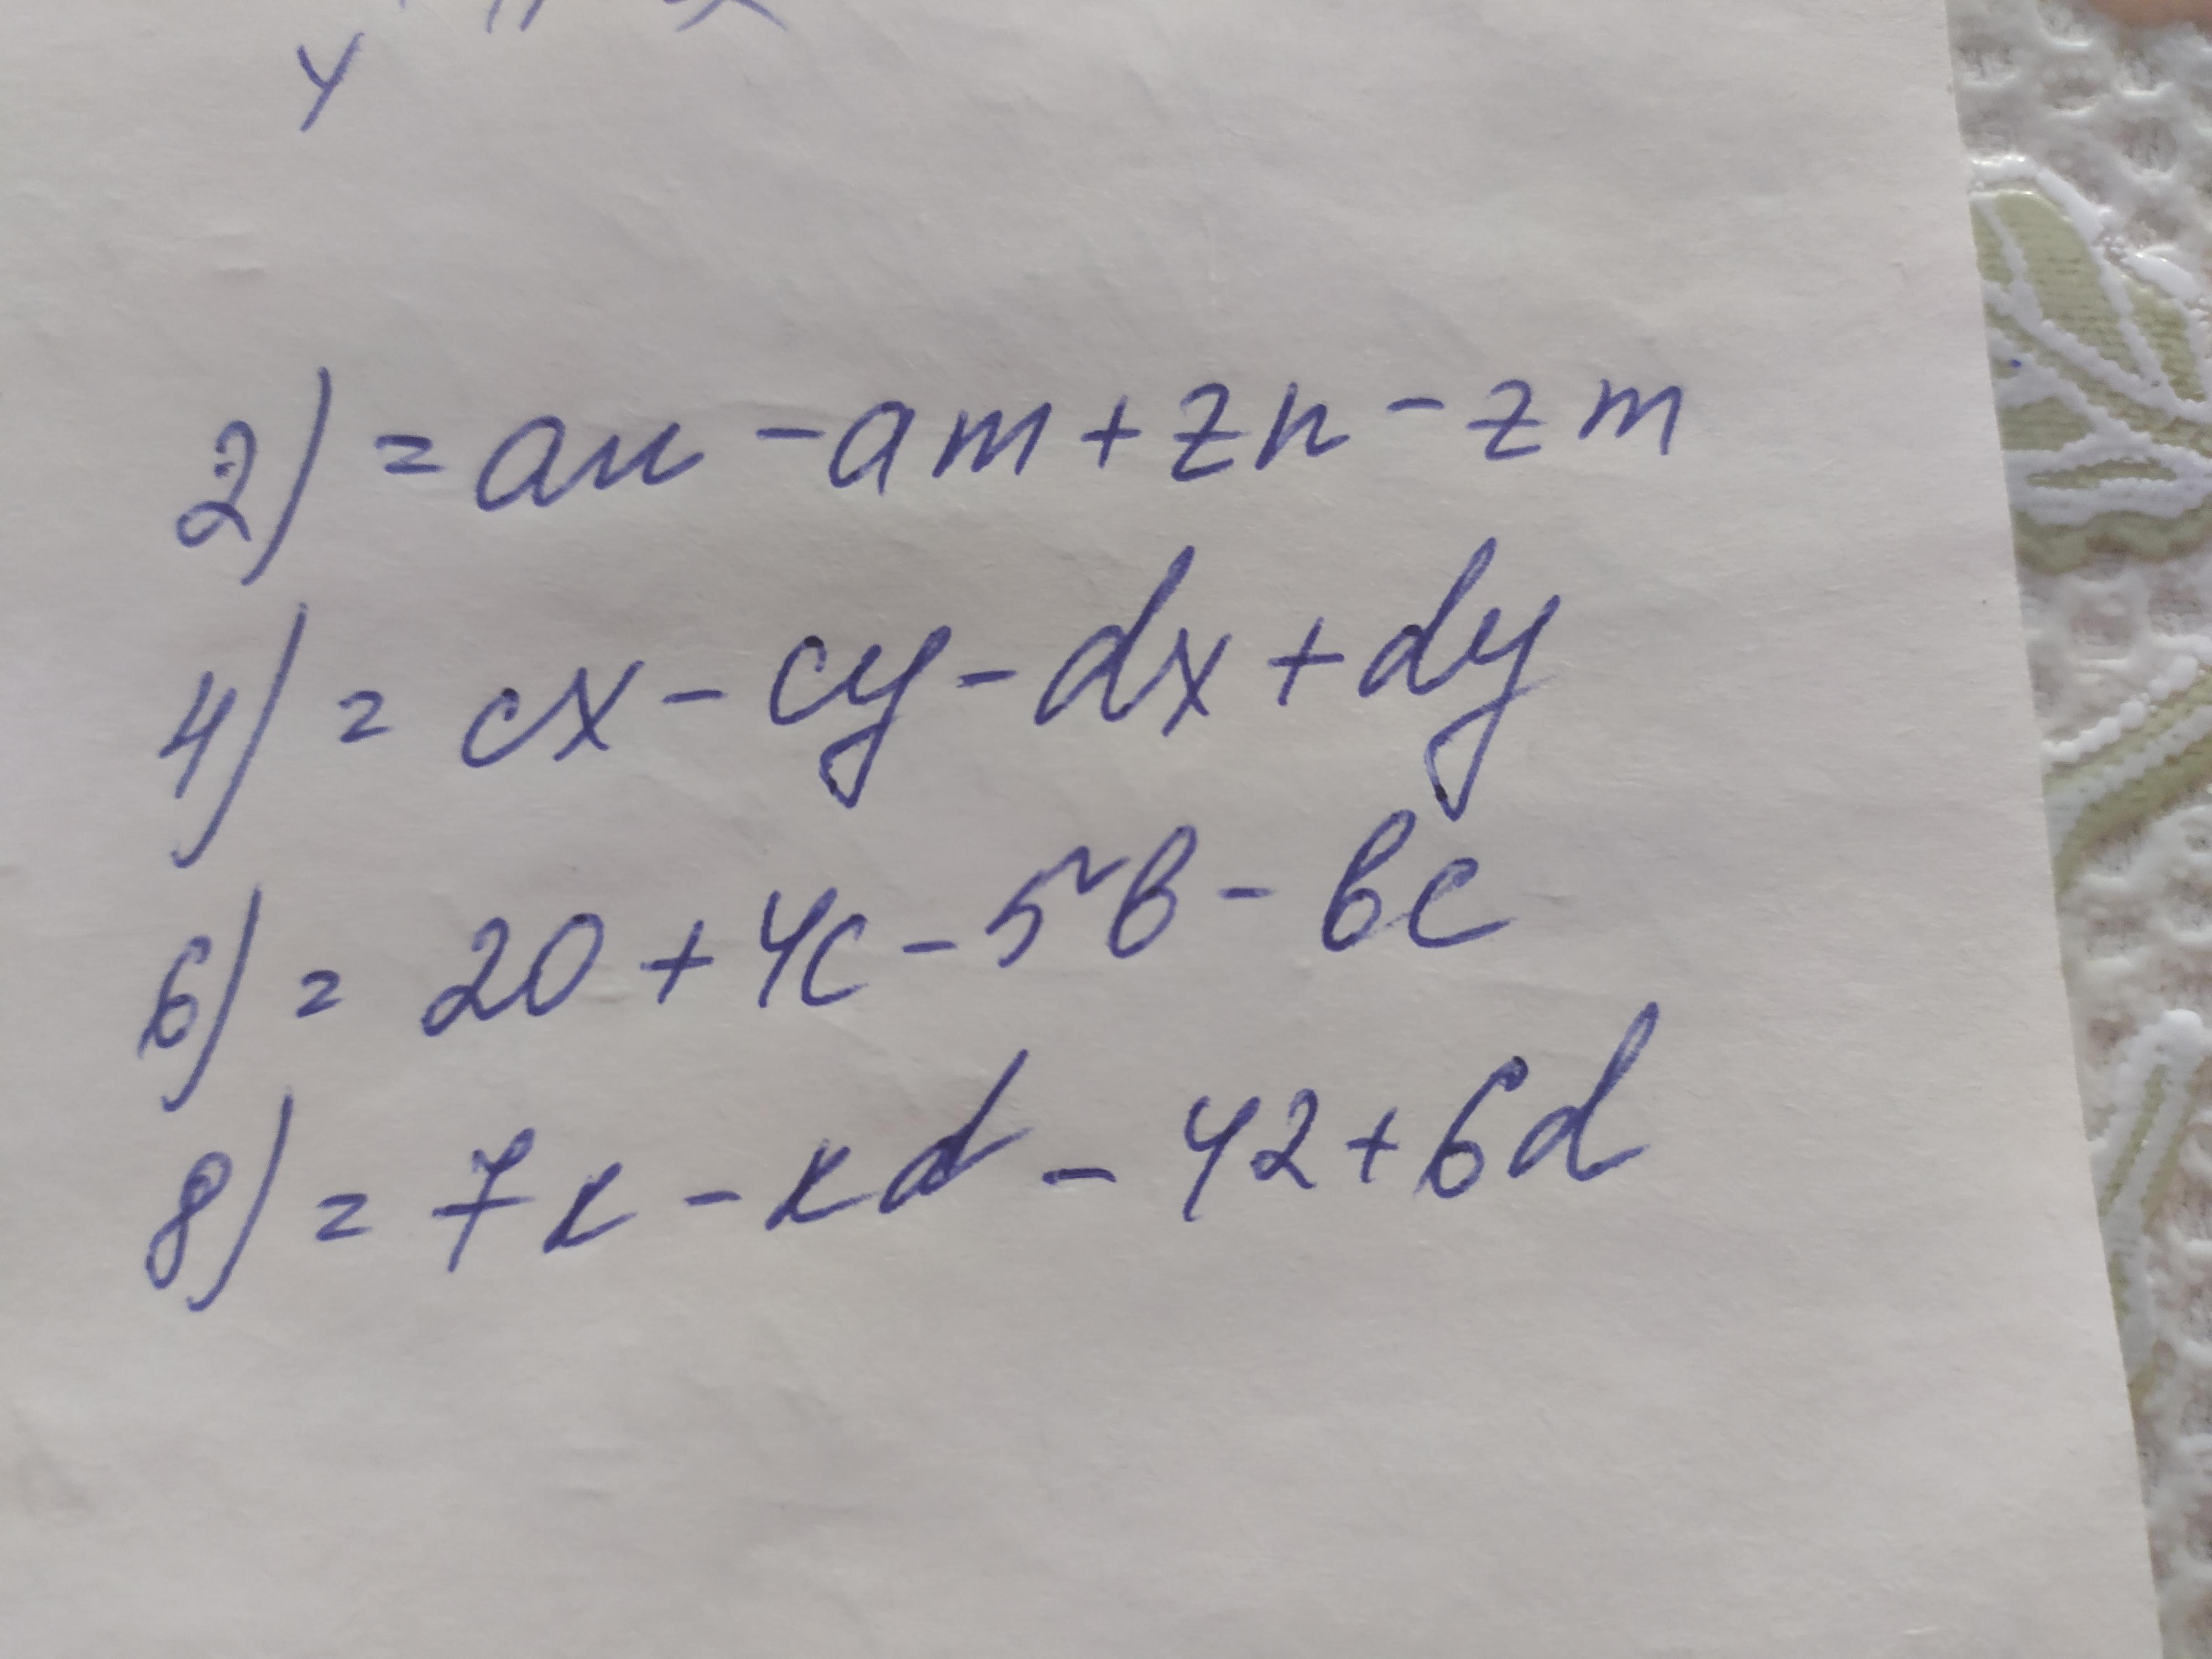 y
2) = an - am + zn - zm
4) = cx - cy - dx + dy
6) = 20 + 4c - 5b - bc
8) = 7k - kd - 42 + 6d